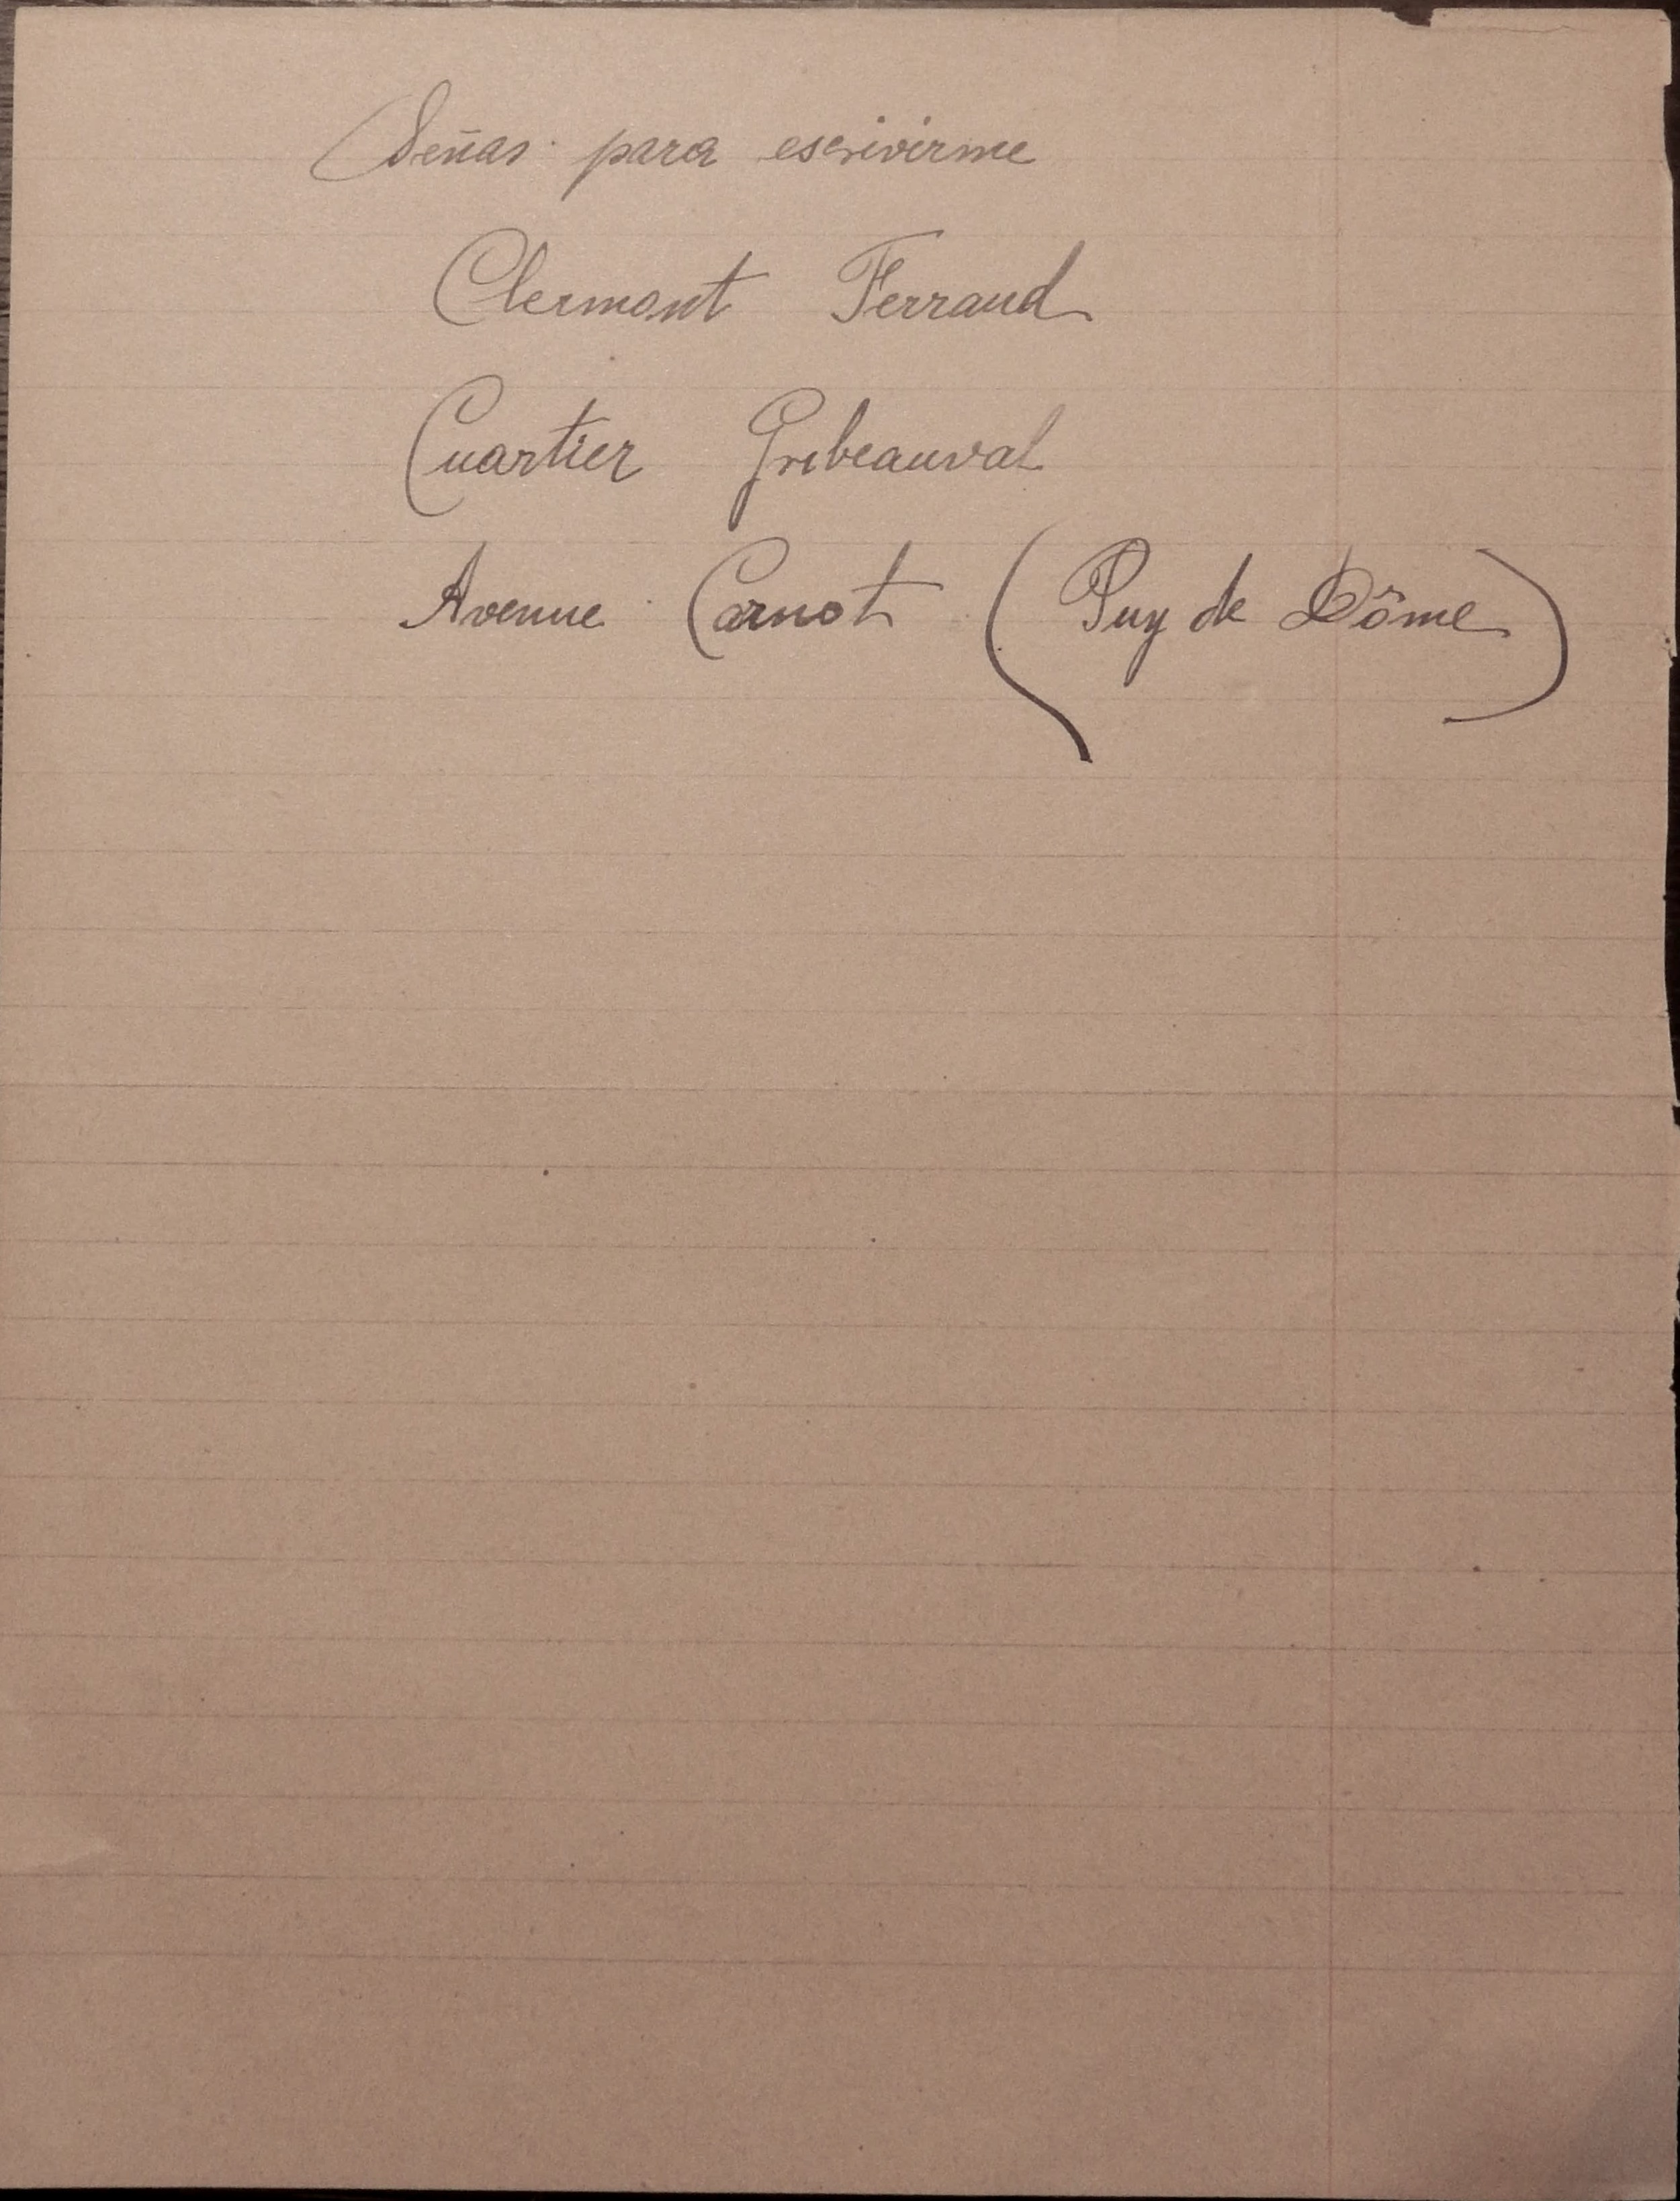 Señas para escrivirme
Clermont Ferrand
Cuartier Gribeauval
Avenue Carnot (Puy de Dôme)